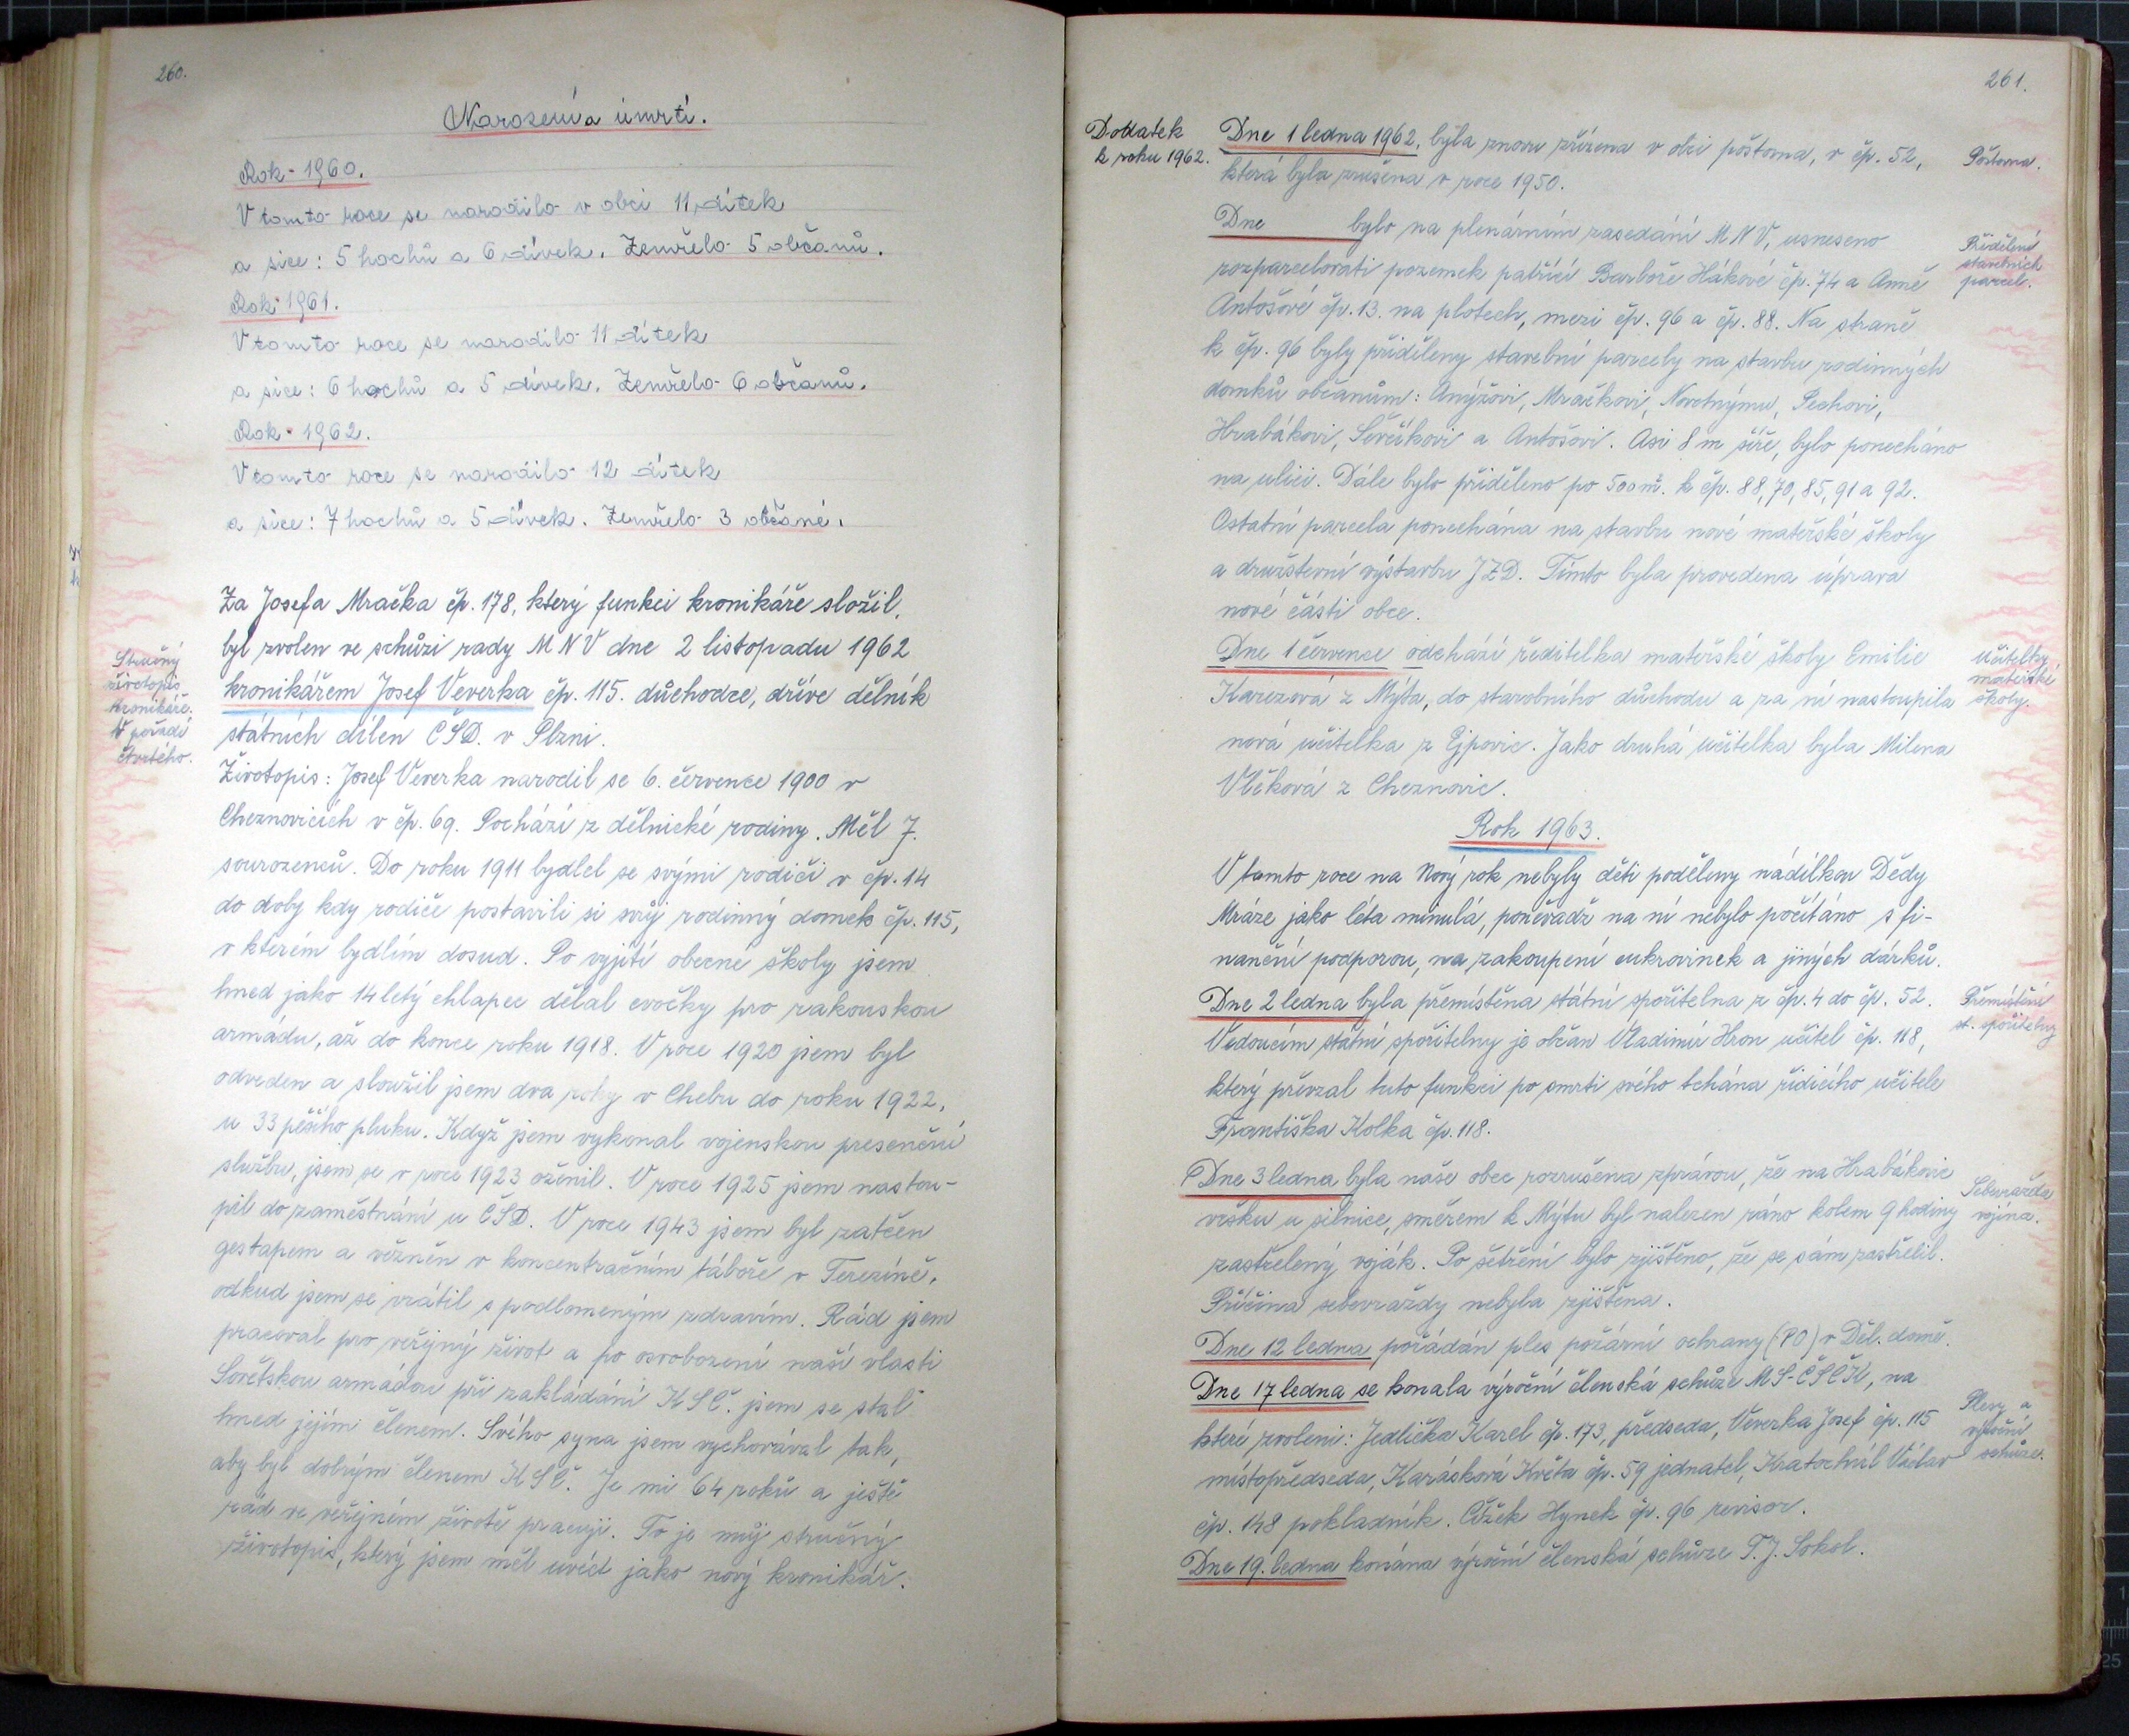 260.
Narození a úmrtí.
Rok - 1960.
V tomto roce se narodilo v obci 11 dítek
a sice: 5 hochů a 6 dívek. Zemřelo 5 občanů.
Rok 1961.
V tomto roce se narodilo 11 dítek
a sice: 6 hochů a 5 dívek. Zemřelo 6 občanů.
Rok - 1962.
V tomto roce se narodilo 12 dítek
a sice: 7 hochů a 5 dívek. Zemřelo 3 občané.
Za Josefa Mračka čp. 178, který funkci kronikáře složil,
byl zvolen ve schůzi rady MNV dne 2 listopadu 1962
kronikářem Josef Veverka čp. 115. důchodce, dříve dělník
státních dílen ČSD. v Plzni.
Stručný
životopis
kronikáře.
V pořadí
čtvrtého.
Životopis: Josef Veverka narodil se 6. července 1900 v
Cheznovicích v čp. 69. Pochází z dělnické rodiny. Měl 7.
sourozenců. Do roku 1911 bydlel se svými rodiči v čp. 14
do doby kdy rodiče postavili si svůj rodinný domek čp. 115,
v kterém bydlím dosud. Po vyjití obecné školy jsem
hned jako 14 letý chlapec dělal cvočky pro rakouskou
armádu, až do konce roku 1918. V roce 1920 jsem byl
odveden a sloužil jsem dva roky v Chebu do roku 1922,
u 33 pěšího pluku. Když jsem vykonal vojenskou presenční
službu, jsem se v roce 1923 oženil. V roce 1925 jsem nastou-
pil do zaměstnání u ČSD. V roce 1943 jsem byl zatčen
gestapem a vězněn v koncentračním táboře v Terezíně,
odkud jsem se vrátil s podlomeným zdravím. Rád jsem
pracoval pro veřejný život a po osvobození naší vlasti
Sovětskou armádou při zakládání KSČ. jsem se stal
hned jejím členem. Svého syna jsem vychovával tak,
aby byl dobrým členem KSČ. Je mi 64 roků a ještě
rád ve veřejném životě pracuji. To je můj stručný
životopis, který jsem měl uvést jako nový kronikář.
261.
Dodatek
k roku 1962.
Dne 1 ledna 1962, byla znovu zřízena v obci poštovna, v čp. 52,
která byla zrušena v roce 1950.
Poštovna.
Dne bylo na plenárním zasedání MNV, usneseno
rozparcelovati pozemek patřící Barboře Hákové čp. 74 a Anně
Antošové čp. 13. na plotech, mezi čp. 96 a čp. 88. Na straně
k čp. 96 byly přiděleny stavební parcely na stavbu rodinných
domků občanům: Amýžovi, Mračkovi, Novotnýmu, Pechovi,
Hrabákovi, Ševčíkovi a Antošovi. Asi 8 m šíře, bylo ponecháno
na ulici. Dále bylo přiděleno po 500 m². k čp. 88, 70, 85, 91 a 92.
Ostatní parcela ponechána na stavbu nové mateřské školy
a družstevní výstavbu JZD. Tímto byla provedena úprava
nové části obce.
Přidělení
stavebních
parcel.
Dne 1 července odchází ředitelka mateřské školy Emilie
Karezová z Mýta, do starobního důchodu a za ní nastoupila
nová učitelka z Ejpovic. Jako druhá učitelka byla Milena
Vlčková z Cheznovic.
Učitelky
mateřské
školy.
Rok 1963.
V tomto roce na Nový rok nebyly děti poděleny nádílkou Dědy
Mráze jako léta minulá, poněvadž na ní nebylo počítáno s fi-
nanční podporou, na zakoupení cukrovinek a jiných dárků.
Dne 2 ledna byla přemístěna státní spořitelna z čp. 4 do čp. 52.
Vedoucím státní spořitelny je občan Vladimír Hron učitel čp. 118,
který převzal tuto funkci po smrti svého tchána řídícího učitele
Františka Kolka čp. 118.
Přemístění
st. spořitelny
Dne 3 ledna byla naše obec rozrušena zprávou, že na Hrabákovic
vršku u silnice, směrem k Mýtu byl nalezen ráno kolem 9 hodiny
zastřelený voják. Po šetření bylo zjištěno, že se sám zastřelil.
Příčina sebevraždy nebyla zjištěna.
Sebevražda
vojína.
Dne 12 ledna pořádán ples požární ochrany (PO) v Děl. domě.
Dne 17 ledna se konala výroční členská schůze MS-ČSČK, na
které zvoleni: Jedlička Karel čp. 173, předseda, Veverka Josef čp. 115
místopředseda, Karásková Květa čp. 59 jednatel, Kratochvíl Václav
čp. 148 pokladník. Čížek Hynek čp. 96 revisor.
Plesy a
výroční
schůze.
Dne 19. ledna konána výroční členská schůze T.J. Sokol.